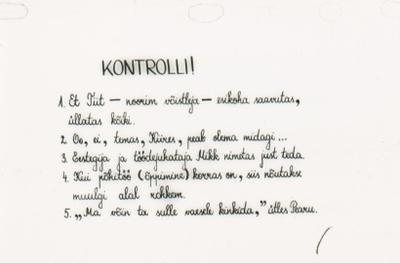 KONTROLLI!
1. Et Tiit — noorim võistleja — esikoha saavutas,
üllatas kõiki.
2. Oo, ei, temas, Kiires, peab olema midagi...
3. Eestegija ja töödejuhataja Mikk nimetas just teda.
4. Kui põhitöö (õppimine) korras on, siis nõutakse
muulgi alal rohkem.
5. „Ma võin ta sulle vaesele kinkida,” ütles Pearu.